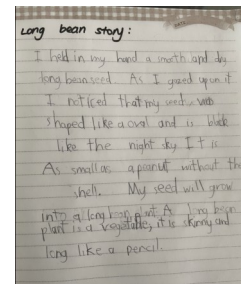 Long bean story:
I held in my hand a smoth and dry
long bean seed. As I gazed upon it
I noticed that my seed was
shaped like a oval and is black
like the night sky It is
As small as a peanut without the
shell. My seed will grow
into a long bean plant. A long bean
plant is a vegetable, it is skinny and
long like a pencil.